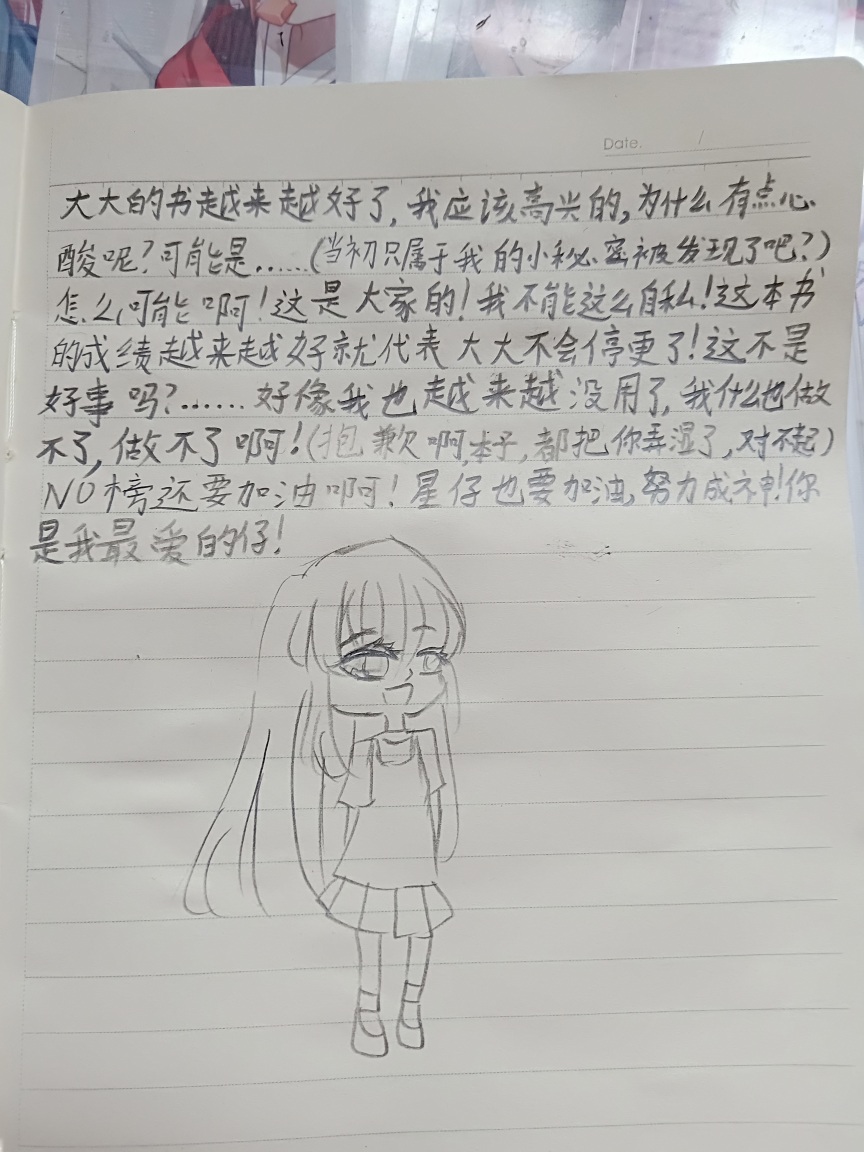 Date. /
大大的书越来越好了,我应该高兴的,为什么有点心
酸呢?可能是……(当初只属于我的小秘密被发现了吧?)
怎么可能啊!这是大家的!我不能这么自私!这本书
的成绩越来越好就代表大大不会停更了!这不是
好事吗?……好像我也越来越没用了,我什么也做
不了,做不了啊!(抱歉啊,本子,都把你弄湿了,对不起)
NO榜还要加油啊!星仔也要加油,努力成神!你
是我最爱的仔!